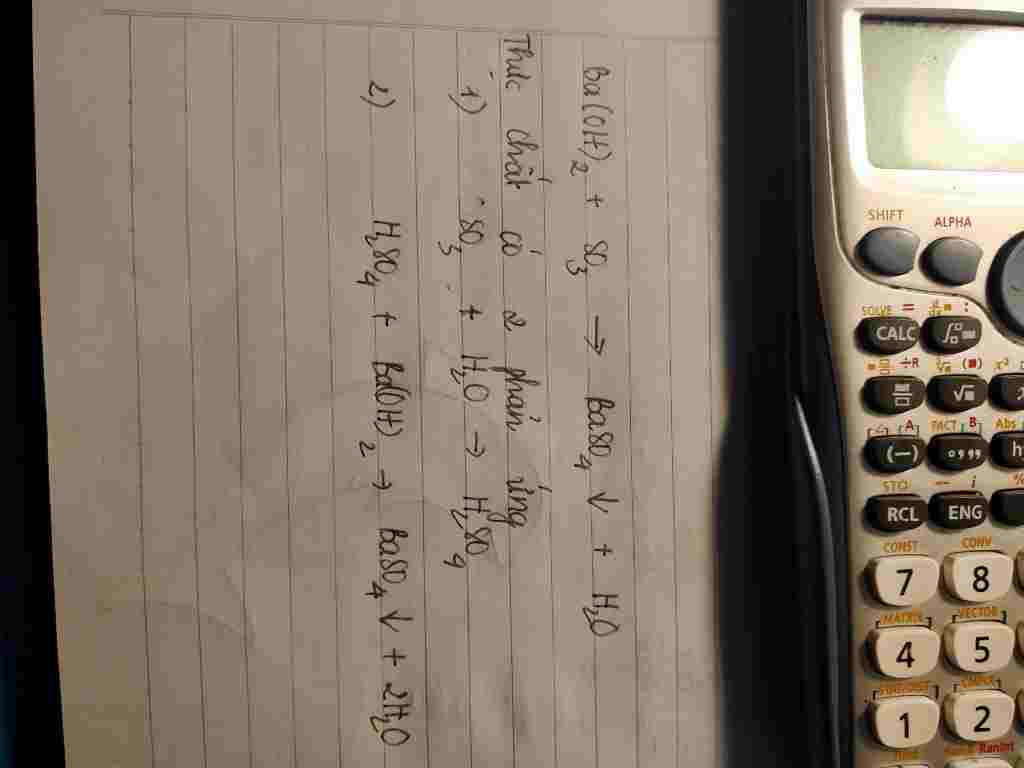 Ba(OH)₂ + SO₃ → BaSO₄↓ + H₂O
Thực chất có 2 phản ứng
1) SO₃ + H₂O → H₂SO₄
2) H₂SO₄ + Ba(OH)₂ → BaSO₄↓ + 2H₂O
SHIFT ALPHA
SOLVE = :
CALC
÷R
FACT B Abs
(−)
STO i
RCL ENG
CONST CONV
7 8
MATRIX VECTOR
4 5
1 2
RanInt